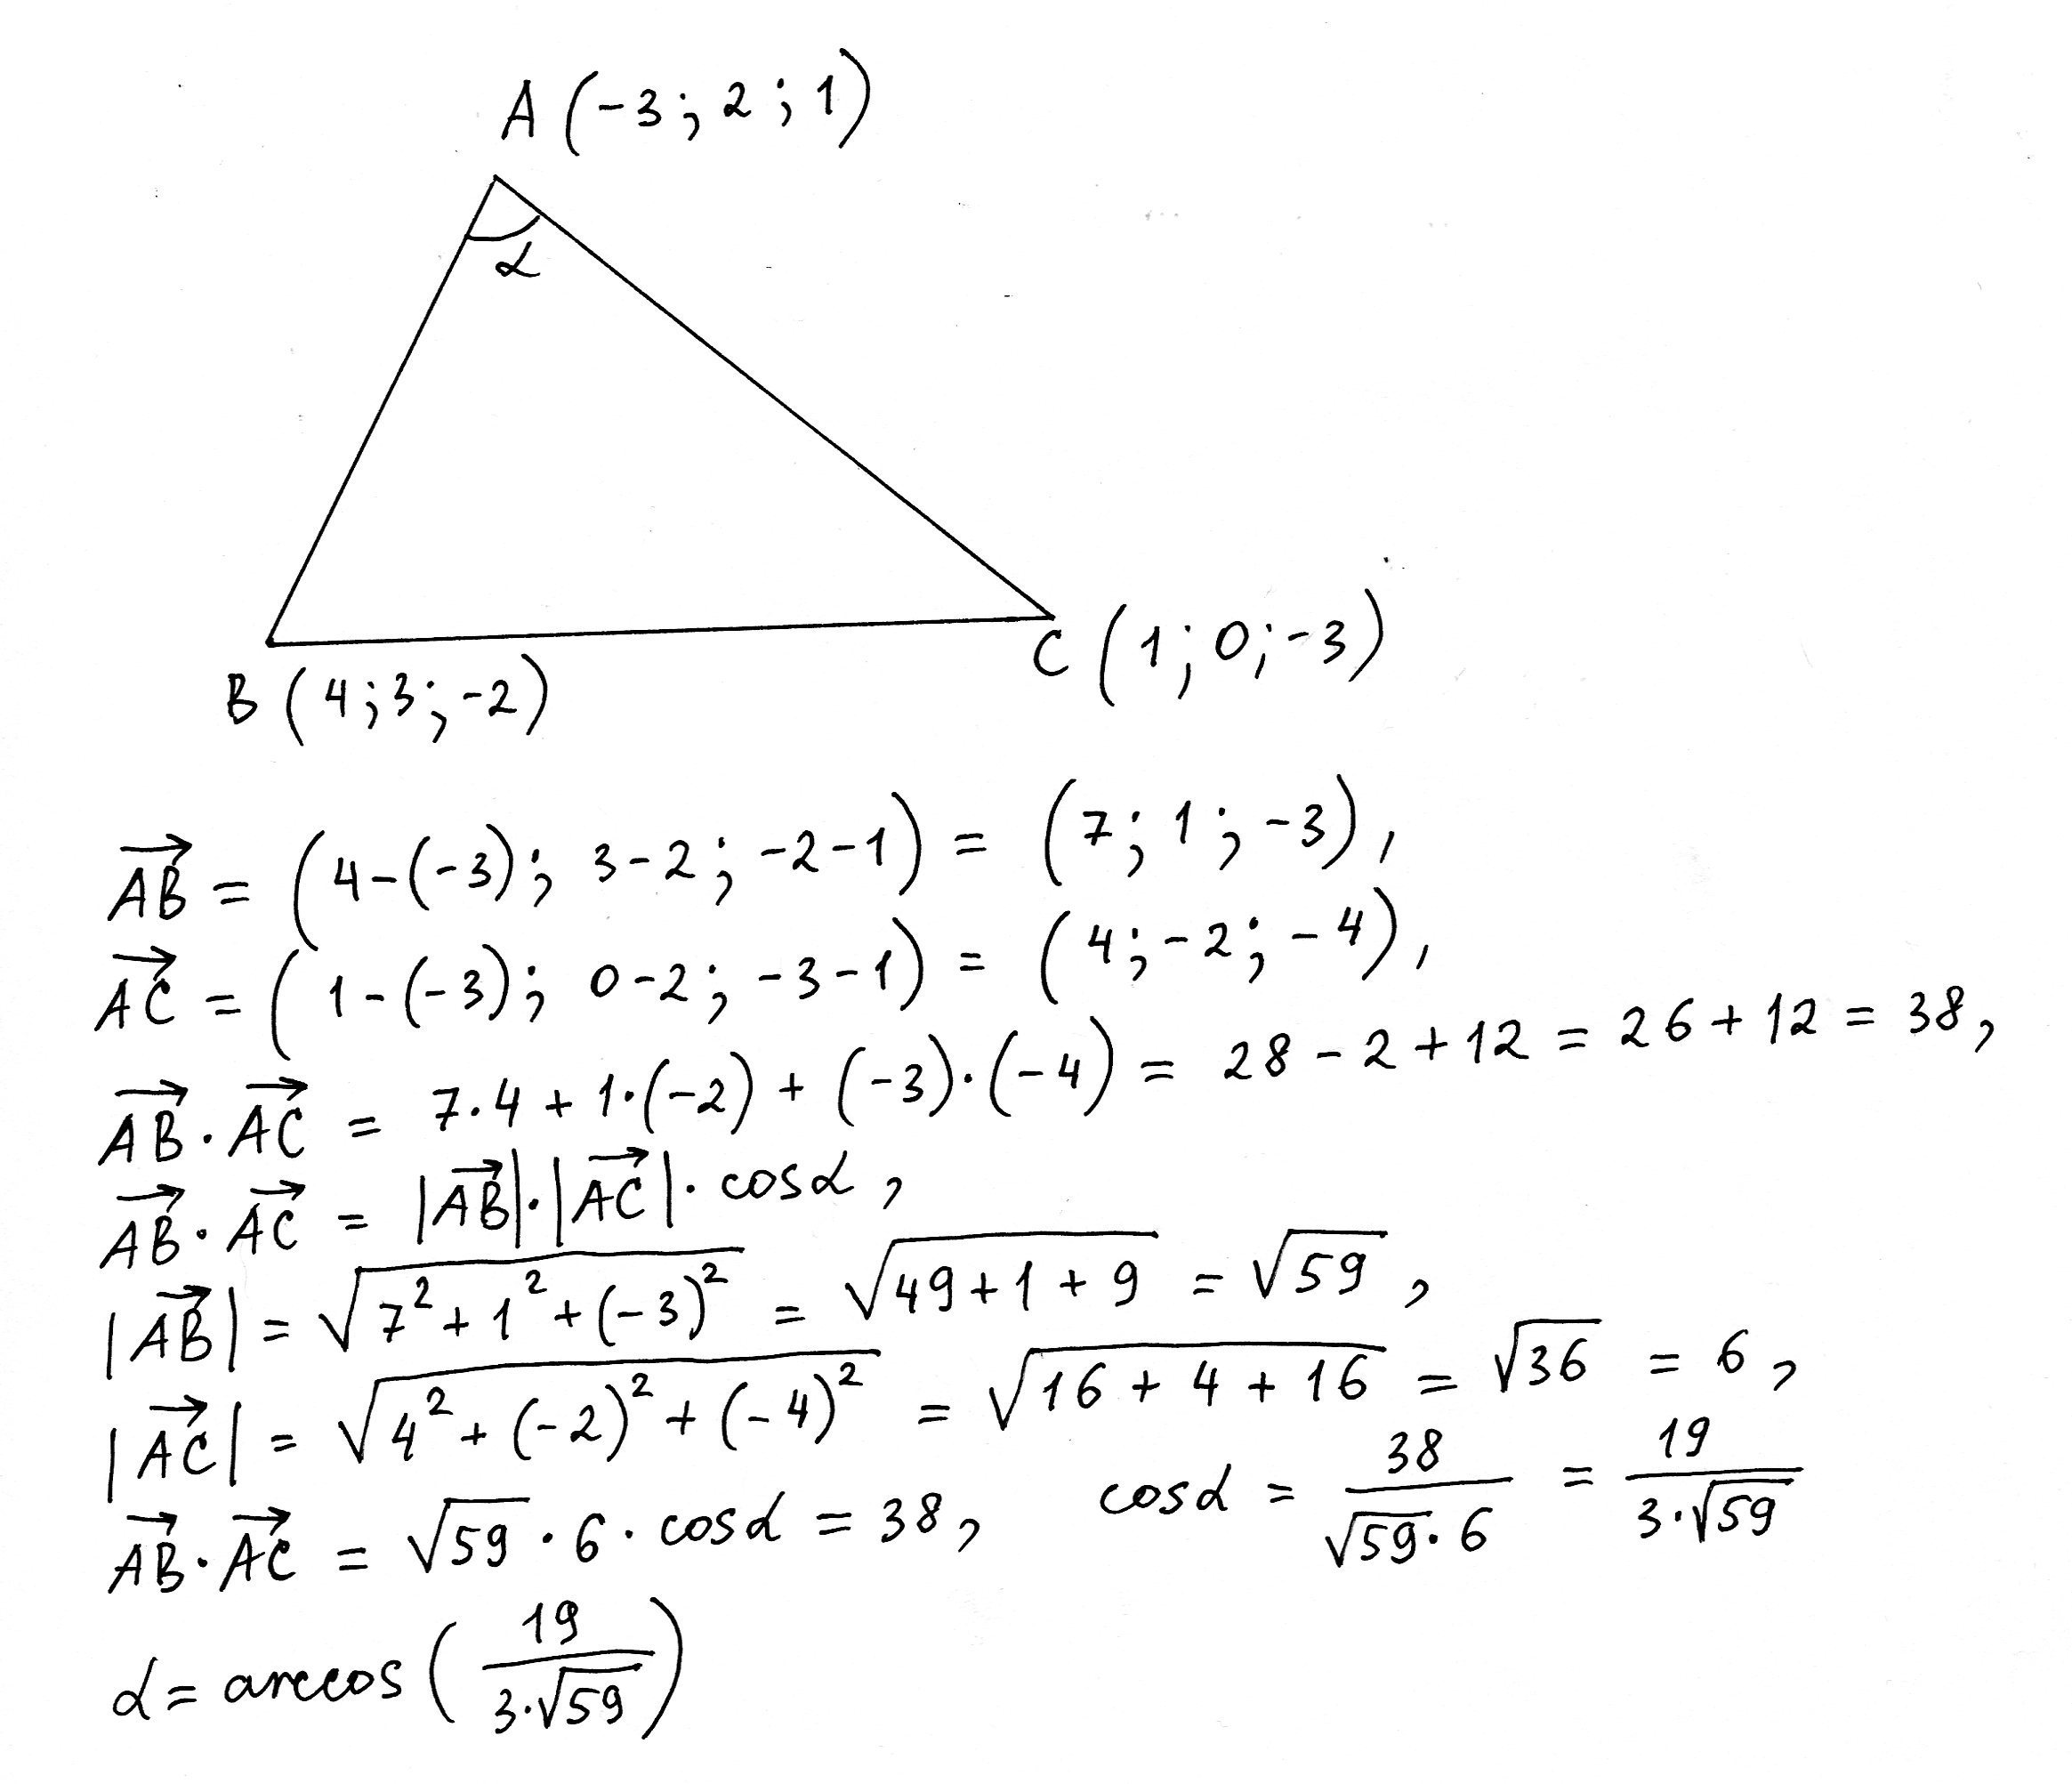 A (-3; 2; 1)
α
C (1; 0; -3)
B (4; 3; -2)
\overrightarrow{AB} = (4-(-3); 3-2; -2-1) = (7; 1; -3),
\overrightarrow{AC} = (1-(-3); 0-2; -3-1) = (4; -2; -4),
\overrightarrow{AB}·\overrightarrow{AC} = 7·4 + 1·(-2) + (-3)·(-4) = 28 - 2 + 12 = 26 + 12 = 38,
\overrightarrow{AB}·\overrightarrow{AC} = |\overrightarrow{AB}|·|\overrightarrow{AC}|· cosα,
|\overrightarrow{AB}| = \sqrt{7^2 + 1^2 + (-3)^2} = \sqrt{49 + 1 + 9} = \sqrt{59},
|\overrightarrow{AC}| = \sqrt{4^2 + (-2)^2 + (-4)^2} = \sqrt{16 + 4 + 16} = \sqrt{36} = 6,
\overrightarrow{AB}·\overrightarrow{AC} = \sqrt{59} · 6 · cosα = 38, cosα = \frac{38}{\sqrt{59}·6} = \frac{19}{3·\sqrt{59}}
α = arccos (\frac{19}{3·\sqrt{59}})